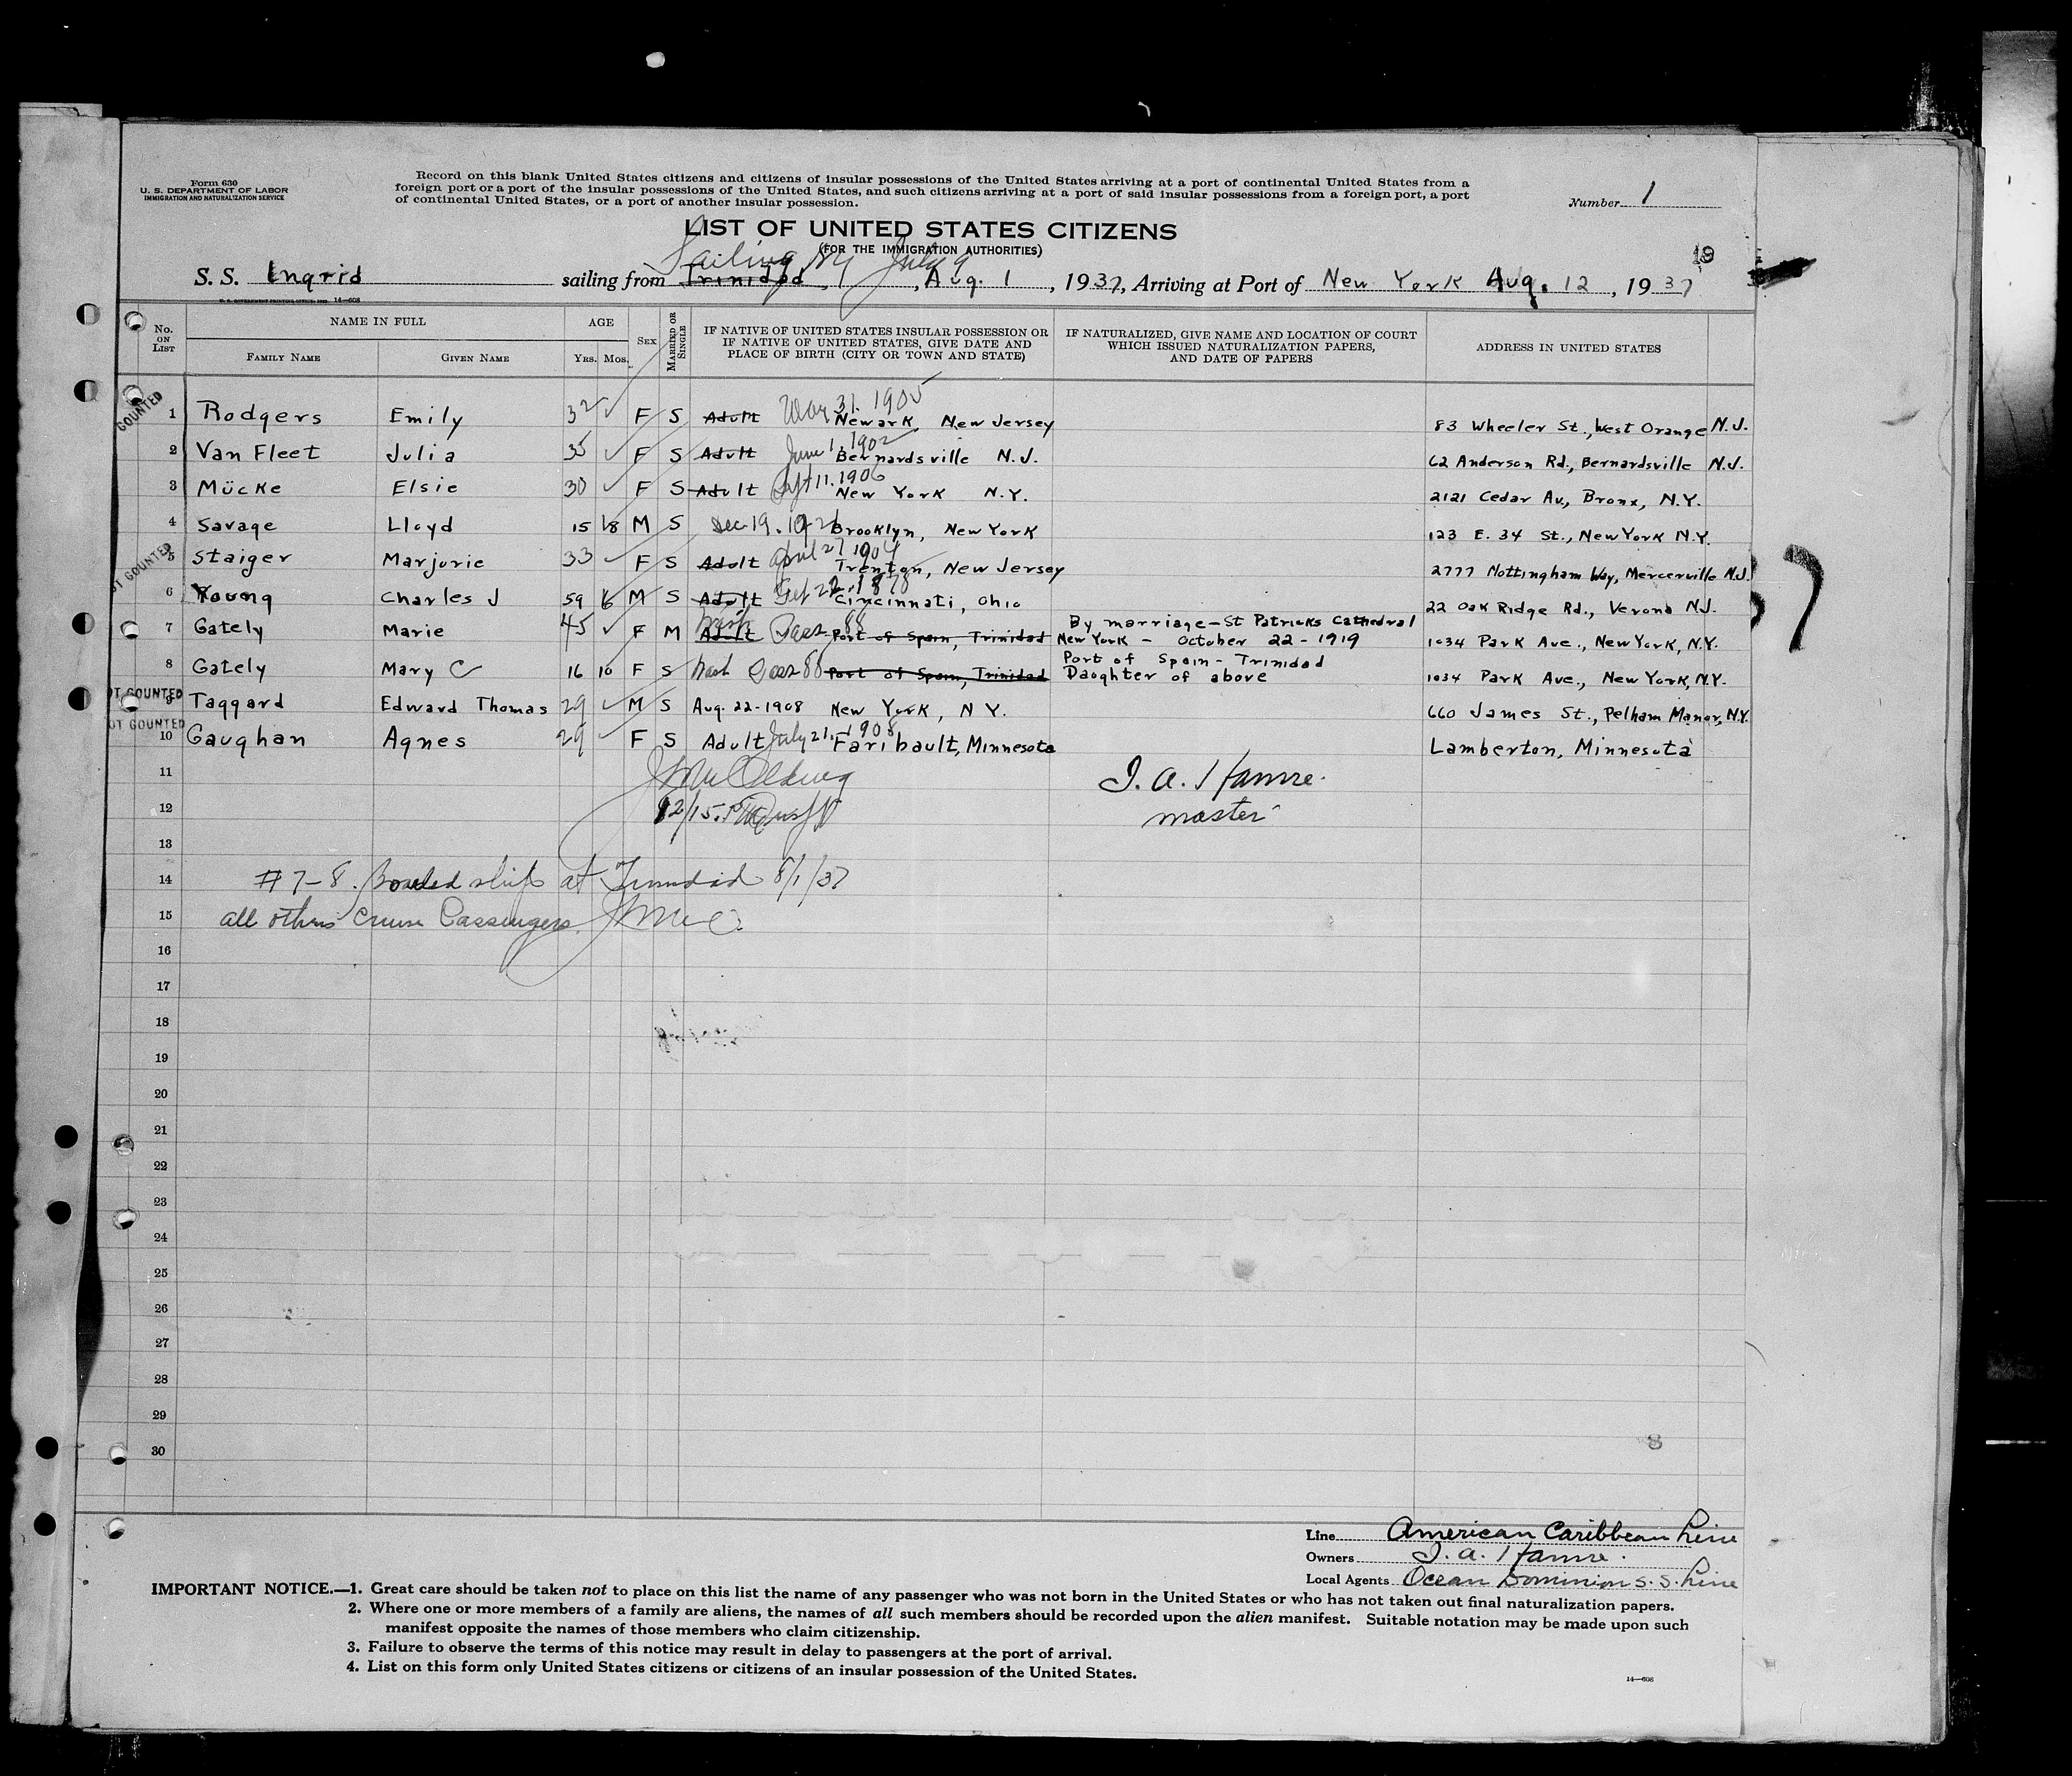 Form 630
U. S. DEPARTMENT OF LABOR
IMMIGRATION AND NATURALIZATION SERVICE
Record on this blank United States citizens and citizens of insular possessions of the United States arriving at a port of continental United States from a
foreign port or a port of the insular possessions of the United States, and such citizens arriving at a port of said insular possessions from a foreign port, a port
of continental United States, or a port of another insular possession.
Number 1
LIST OF UNITED STATES CITIZENS
(FOR THE IMMIGRATION AUTHORITIES)
Sailing NY July 9
19
S. S. Ingrid sailing from Trinidad, Aug. 1, 1937, Arriving at Port of New York Aug. 12, 1937
U. S. GOVERNMENT PRINTING OFFICE 14—608
No. ON LIST
NAME IN FULL
FAMILY NAME
GIVEN NAME
AGE
YRS. MOS.
SEX
MARRIED OR SINGLE
IF NATIVE OF UNITED STATES INSULAR POSSESSION OR
IF NATIVE OF UNITED STATES, GIVE DATE AND
PLACE OF BIRTH (CITY OR TOWN AND STATE)
IF NATURALIZED, GIVE NAME AND LOCATION OF COURT
WHICH ISSUED NATURALIZATION PAPERS,
AND DATE OF PAPERS
ADDRESS IN UNITED STATES
COUNTED
1 Rodgers Emily 32 F S Adult 31. 1905 Newark, New Jersey 83 Wheeler St., West Orange N.J.
2 Van Fleet Julia 35 F S Adult June 1, 1902 Bernardsville N.J. 62 Anderson Rd., Bernardsville N.J.
3 Mücke Elsie 30 F S Adult Sept 11. 1906 New York N.Y. 2121 Cedar Av., Bronx, N.Y.
4 Savage Lloyd 15 M S Dec 19. 1921 Brooklyn, New York 123 E. 34 St., New York N.Y.
5 Staiger Marjorie 33 F S Adult April 27 1904 Trenton, New Jersey 2777 Nottingham Way, Mercerville N.J.
6 Young Charles J 59 M S Adult 22. 1878 Cincinnati, Ohio 22 Oak Ridge Rd., Verona N.J.
7 Gately Marie 45 F M Adult Wash Pass 88 Port of Spain, Trinidad By marriage - St Patricks Cathedral New York - October 22 - 1919 1034 Park Ave., New York, N.Y.
8 Gately Mary C 16 10 F S Wash Pass 88 Port of Spain, Trinidad Port of Spain - Trinidad Daughter of above 1034 Park Ave., New York, N.Y.
OT COUNTED
9 Taggard Edward Thomas 29 M S Aug. 22-1908 New York, N Y. 660 James St., Pelham Manor, N.Y.
OT COUNTED
10 Gaughan Agnes 29 F S Adult July 21, 1908 Faribault, Minnesota Lamberton, Minnesota
11 I. A. Hamre.
12 master
13
14 #7-8. Boarded ship at Trinidad 8/1/37
15 all others Cruise Passengers.
16
17
18
19
20
21
22
23
24
25
26
27
28
29
30
8
Line American Caribbean Line
Owners I. A. Hamre.
Local Agents Ocean Dominion S. S. Line
IMPORTANT NOTICE.—1. Great care should be taken not to place on this list the name of any passenger who was not born in the United States or who has not taken out final naturalization papers.
2. Where one or more members of a family are aliens, the names of all such members should be recorded upon the alien manifest. Suitable notation may be made upon such
manifest opposite the names of those members who claim citizenship.
3. Failure to observe the terms of this notice may result in delay to passengers at the port of arrival.
4. List on this form only United States citizens or citizens of an insular possession of the United States.
14—608